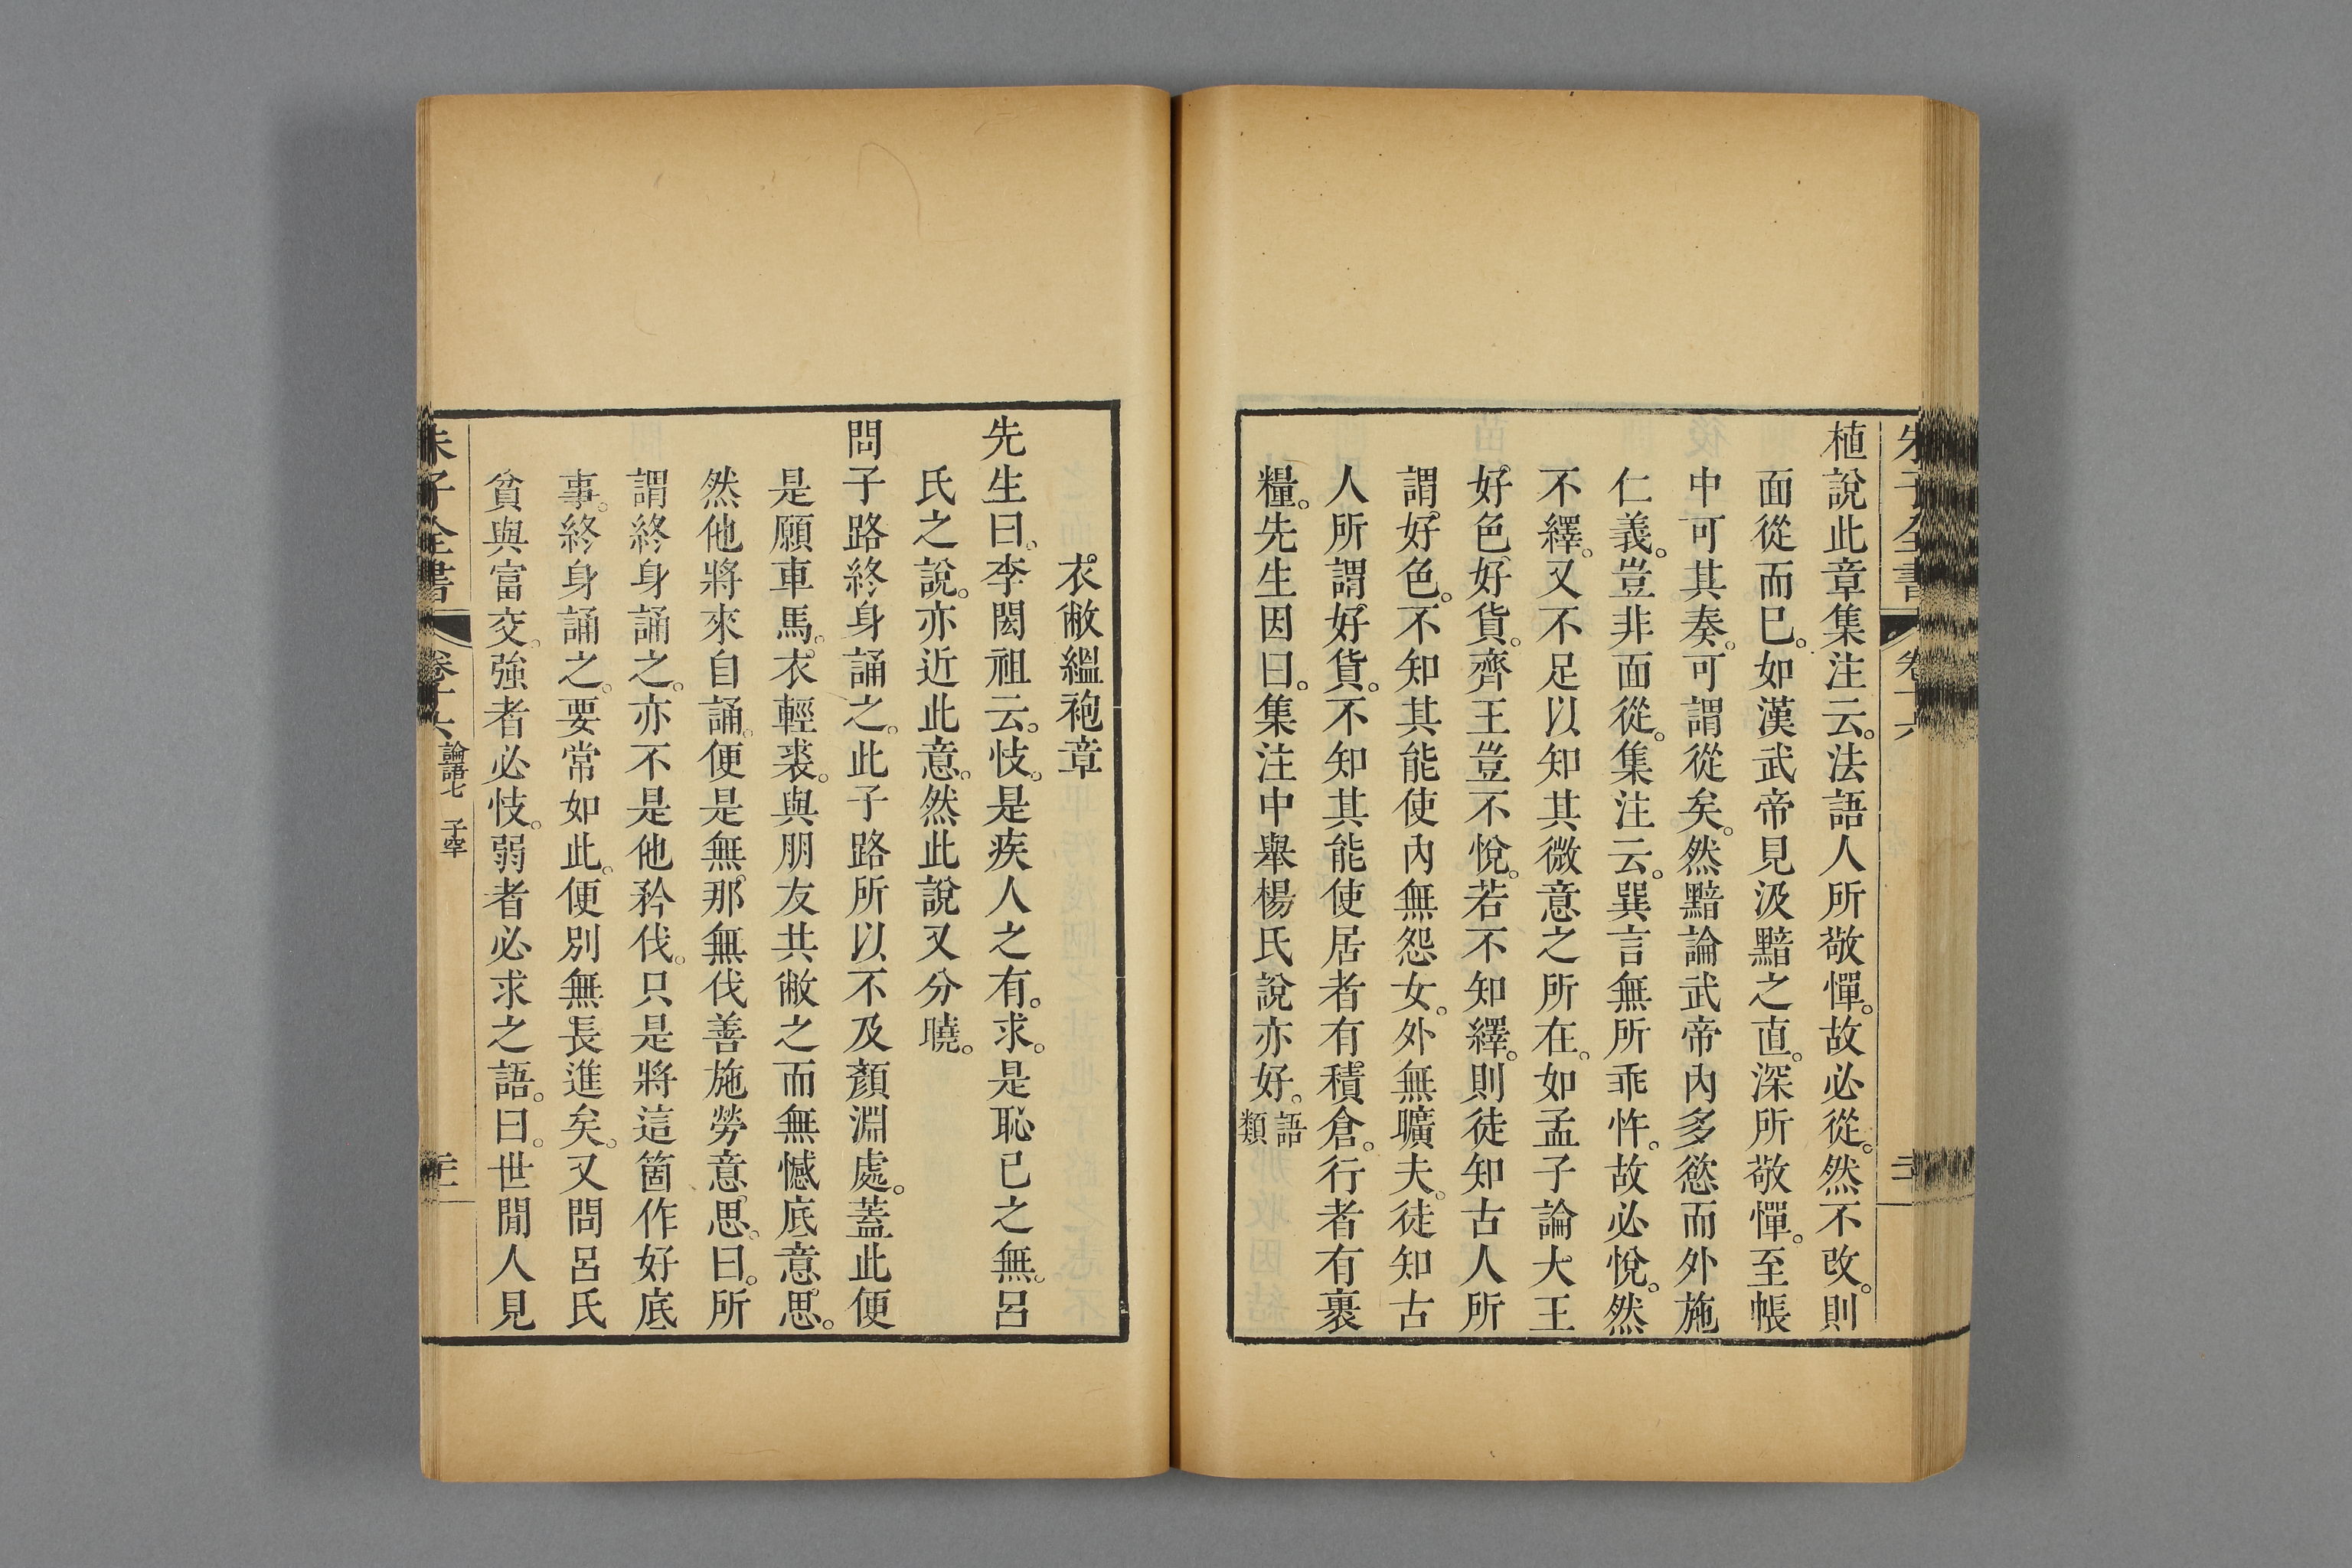 朱子全書 卷十六
植說此章集注云。法語人所敬憚。故必從。然不改。則
面從而已。如漢武帝見汲黯之直。深所敬憚。至帳
中可其奏。可謂從矣。然黯論武帝內多慾而外施
仁義。豈非面從。集注云。巽言無所乖忤。故必悅。然
不繹。又不足以知其微意之所在。如孟子論大王
好色好貨。齊王豈不悅。若不知繹。則徒知古人所
謂好色。不知其能使內無怨女。外無曠夫。徒知古
人所謂好貨。不知其能使居者有積倉。行者有裹
糧。先生因曰。集注中舉楊氏說亦好。語類
衣敝縕袍章
先生曰。李閎祖云。忮。是疾人之有。求。是恥己之無。呂
氏之說。亦近此意。然此說又分曉。
問子路終身誦之。此子路所以不及顏淵處。蓋此便
是願車馬。衣輕裘。與朋友共敝之而無憾底意思。
然他將來自誦。便是無那無伐善施勞意思。曰。所
謂終身誦之。亦不是他矜伐。只是將這箇作好底
事。終身誦之。要常如此。便別無長進矣。又問呂氏
貧與富交。強者必忮。弱者必求之語。曰。世閒人見
朱子全書 卷十六 論語七 子罕